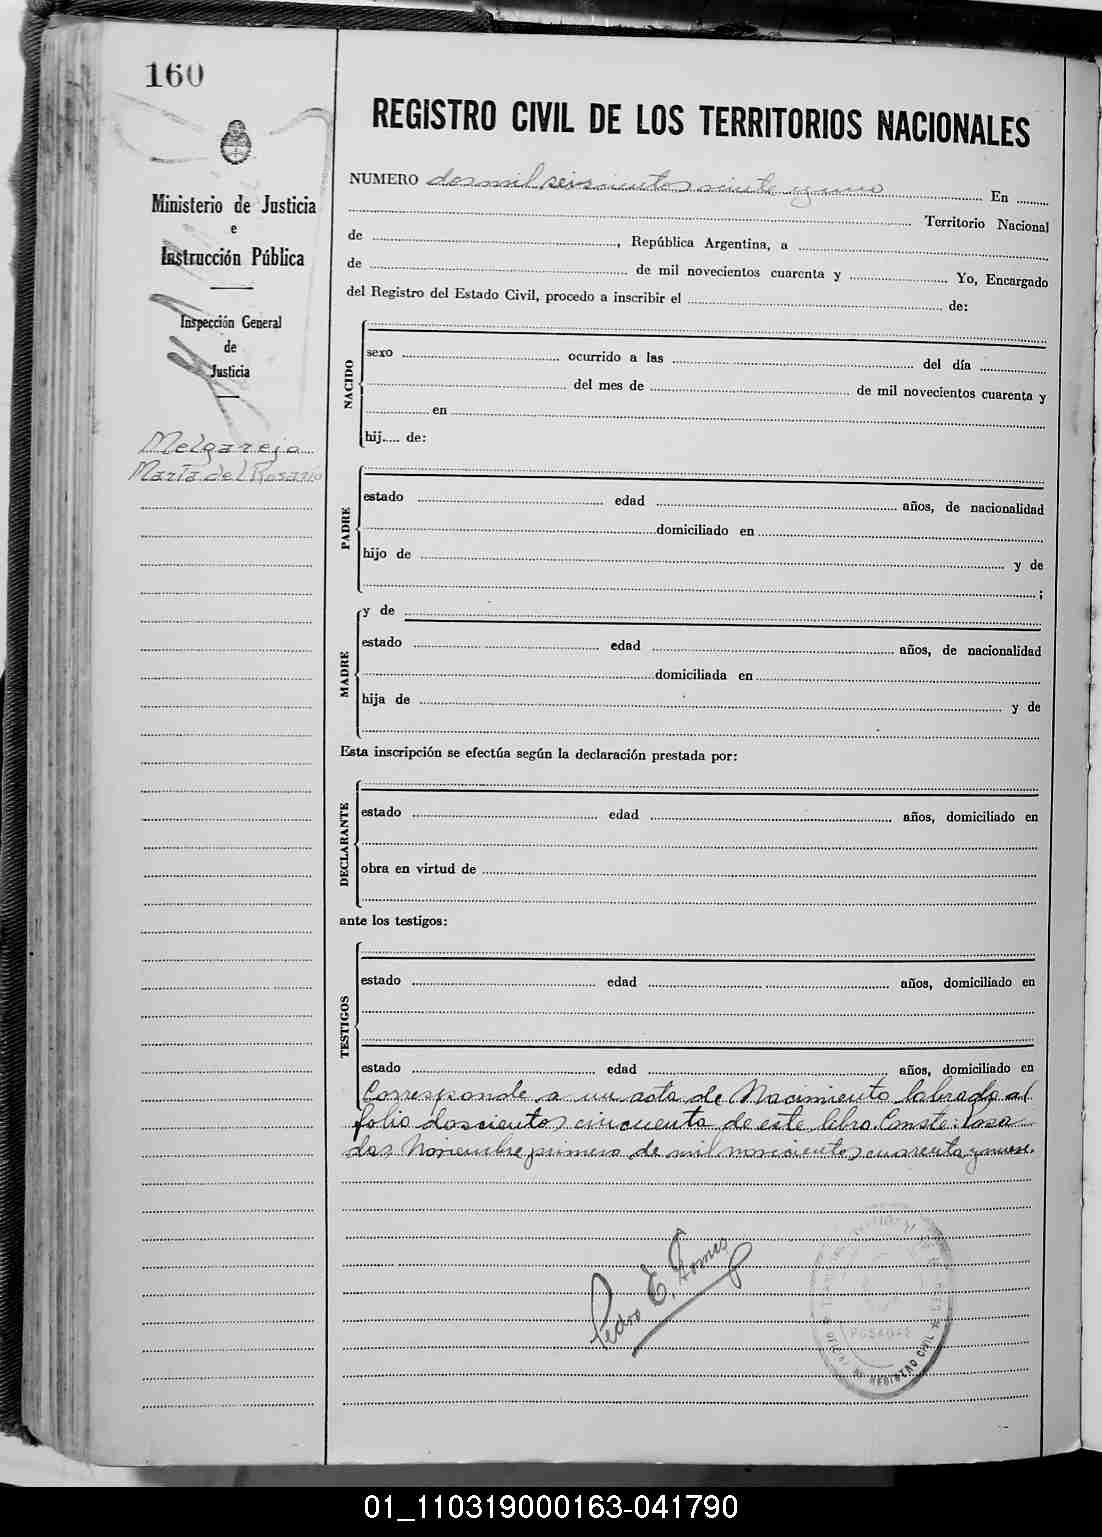 160
Ministerio de Justicia
e
Instrucción Pública
Inspección General
de
Justicia
Melgarejo
María del Rosario
REGISTRO CIVIL DE LOS TERRITORIOS NACIONALES
NUMERO dos mil seiscientos veinte y uno En
Territorio Nacional
de , República Argentina, a
de de mil novecientos cuarenta y Yo, Encargado
del Registro del Estado Civil, procedo a inscribir el de:
NACIDO
sexo ocurrido a las del día
del mes de de mil novecientos cuarenta y
en
hij.... de:
PADRE
estado edad años, de nacionalidad
domiciliado en
hijo de y de
;
MADRE
y de
estado edad años, de nacionalidad
domiciliada en
hija de y de
Esta inscripción se efectúa según la declaración prestada por:
DECLARANTE
estado edad años, domiciliado en
obra en virtud de
ante los testigos:
TESTIGOS
estado edad años, domiciliado en
estado edad años, domiciliado en
Corresponde a un acta de Nacimiento labrada al
folio doscientos cincuenta de este libro. Conste: Posa
das Noviembre primero de mil novecientos cuarenta y nueve.
Pedro E.
POSADAS
REGISTRO CIVIL
01_110319000163-041790